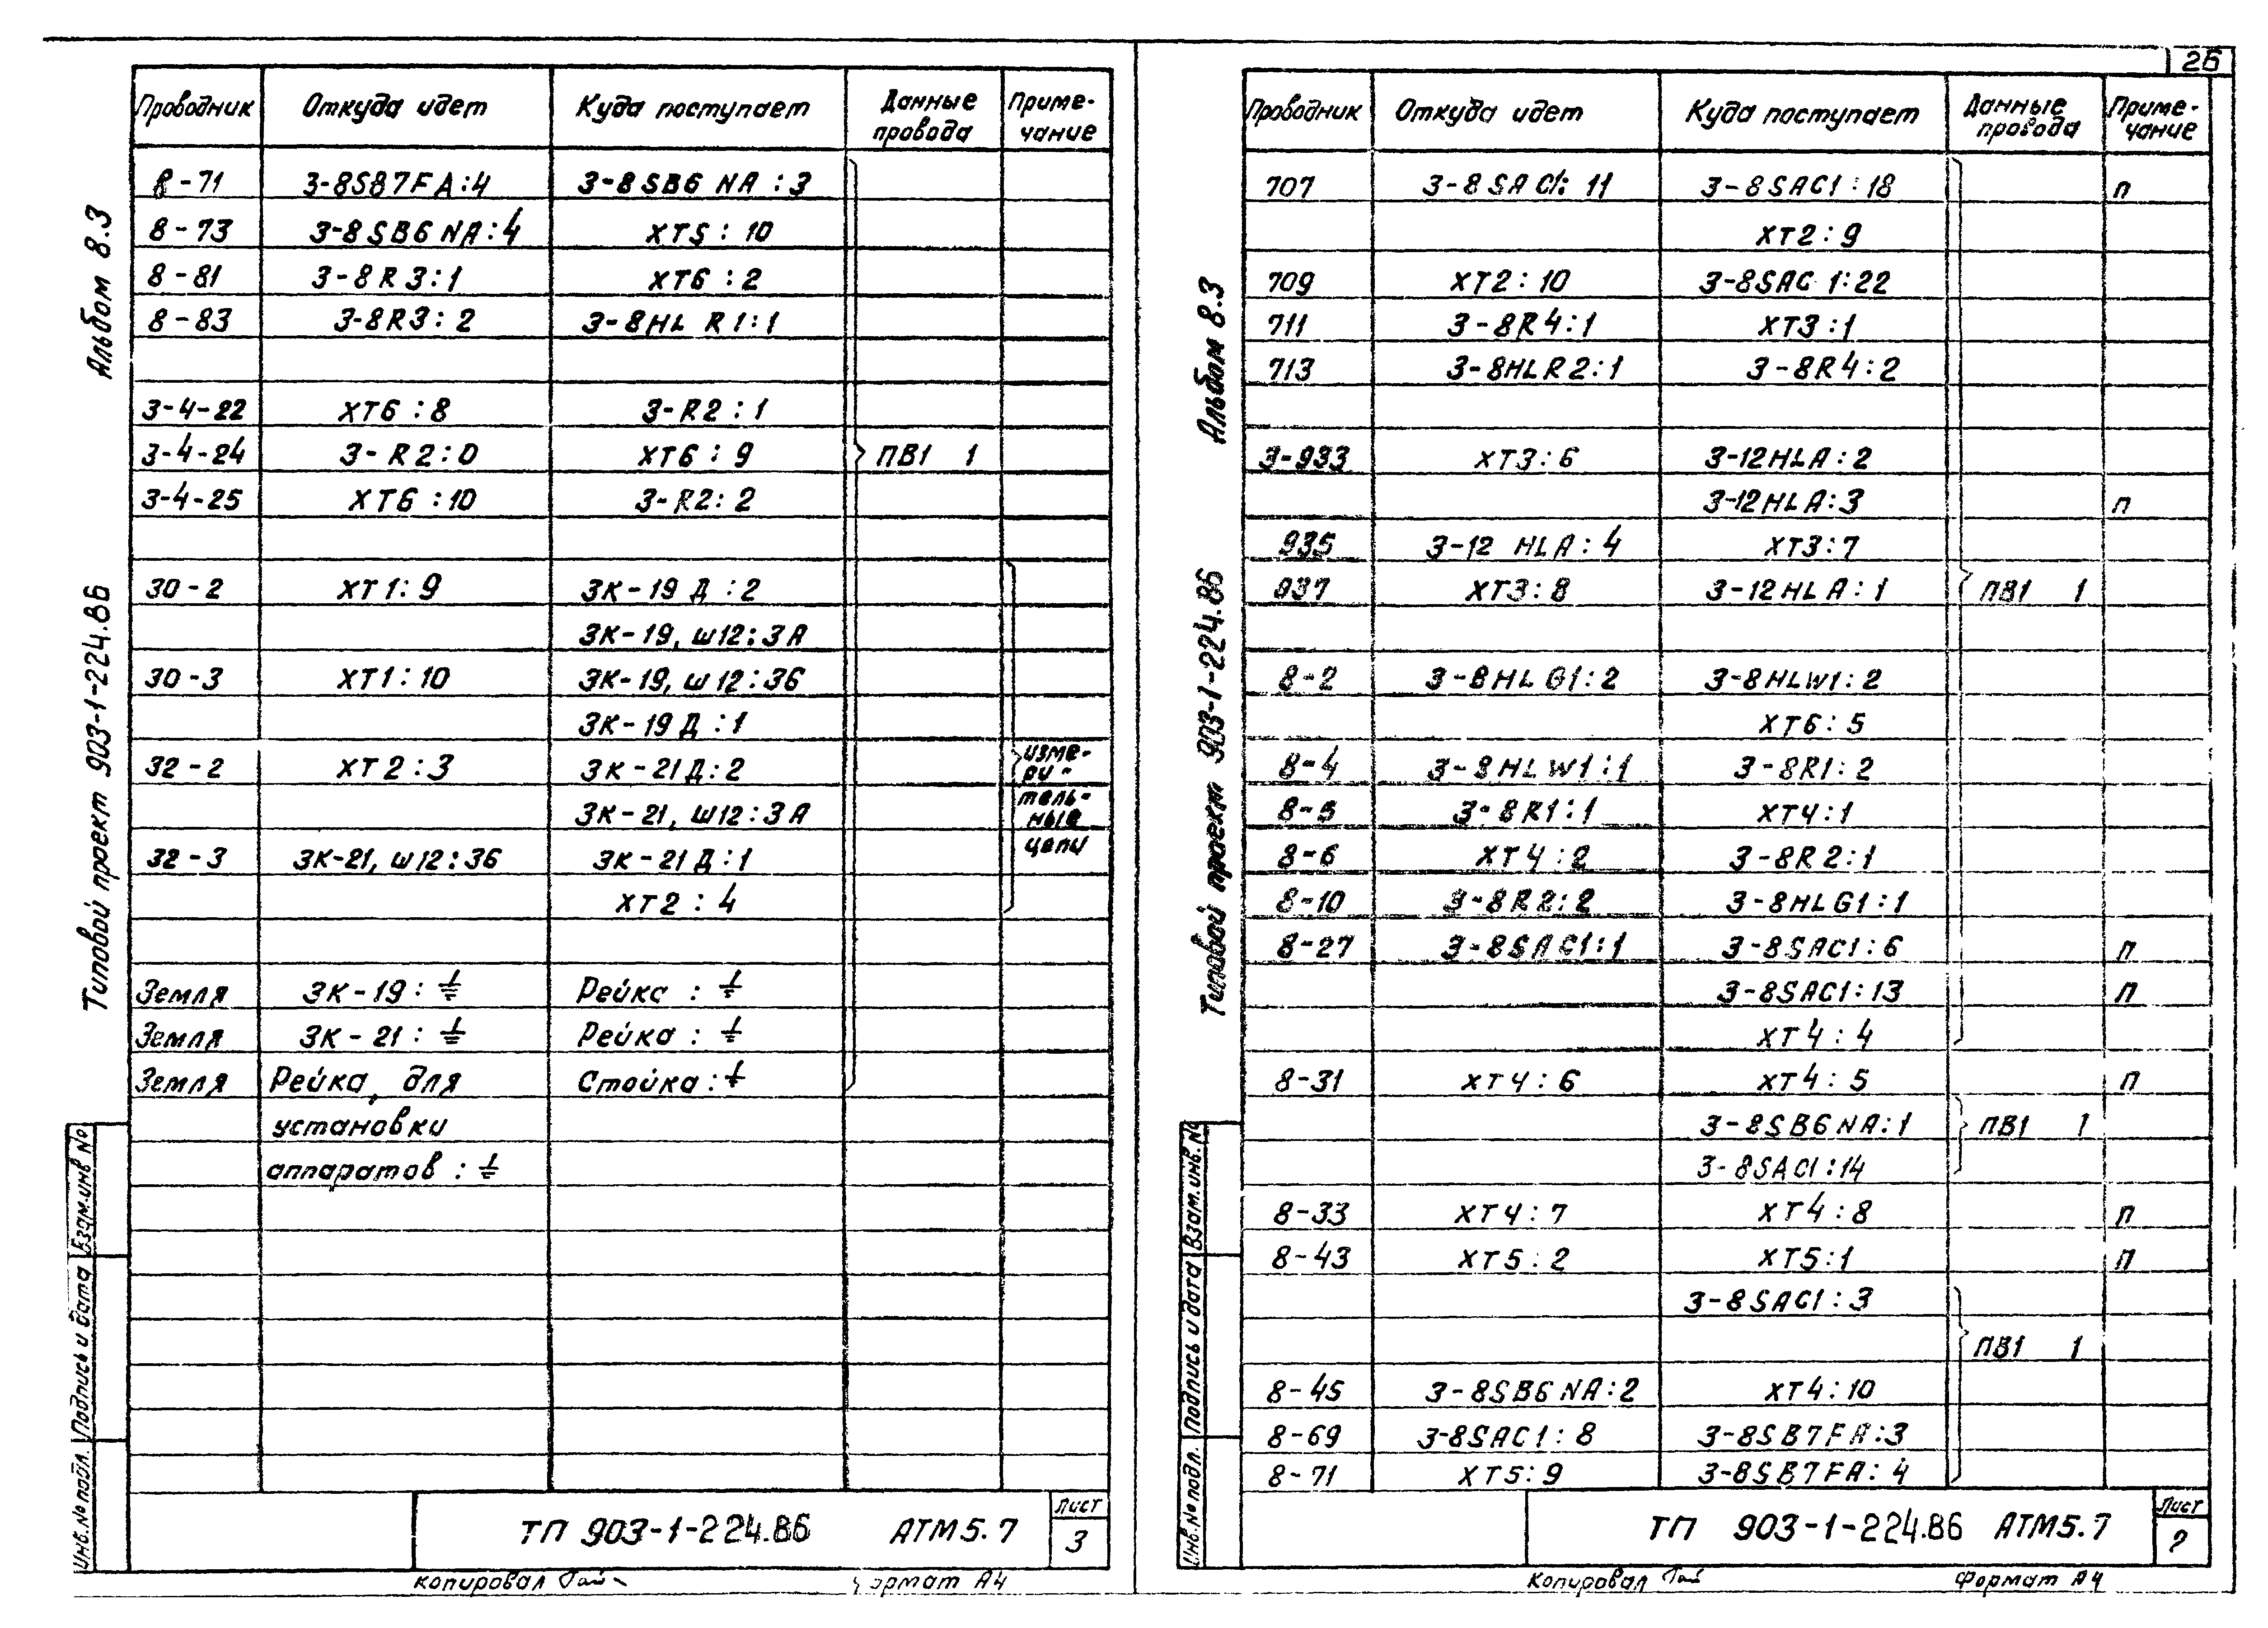 26
Альбом 8.3
Типовой проект 903-1-224.86
Проводник Откуда идет Куда поступает Данные провода Приме-чание
8-71 3-8SB7FA:4 3-8SB6 NA:3
8-73 3-8SB6NA:4 XT5:10
8-81 3-8R3:1 XT6:2
8-83 3-8R3:2 3-8HL R1:1
3-4-22 XT6:8 3-R2:1
3-4-24 3-R2:0 XT6:9 ПВ1 1
3-4-25 XT6:10 3-R2:2
30-2 XT1:9 3К-19Д:2
3К-19, ш12:3А
30-3 XT1:10 3К-19, ш12:36
3К-19Д:1
32-2 XT2:3 3К-21Д:2 изме-ри-
3К-21, ш12:3А тель-ные
32-3 3К-21, ш12:36 3К-21Д:1 цепи
XT2:4
Земля 3К-19:⏚ Рейка:⏚
Земля 3К-21:⏚ Рейка:⏚
Земля Рейка, для Стойка:⏚
установки
аппаратов:⏚
Инв.№ подл. Подпись и дата Взам.инв №
ТП 903-1-224.86 АТМ5.7 Лист 3
Копировал Формат А4
Альбом 8.3
Типовой проект 903-1-224.86
Проводник Откуда идет Куда поступает Данные провода Приме-чание
707 3-8SAC1:11 3-8SAC1:18 п
XT2:9
709 XT2:10 3-8SAC1:22
711 3-8R4:1 XT3:1
713 3-8HLR2:1 3-8R4:2
3-933 XT3:6 3-12HLA:2
3-12HLA:3 п
935 3-12 HLA:4 XT3:7
937 XT3:8 3-12HLA:1 ПВ1 1
8-2 3-8HLG1:2 3-8HLW1:2
XT6:5
8-4 3-8HLW1:1 3-8R1:2
8-5 3-8R1:1 XT4:1
8-6 XT4:2 3-8R2:1
8-10 3-8R2:2 3-8HLG1:1
8-27 3-8SAC1:1 3-8SAC1:6 п
3-8SAC1:13 п
XT4:4
8-31 XT4:6 XT4:5 п
3-8SB6NA:1 ПВ1 1
3-8SAC1:14
8-33 XT4:7 XT4:8 п
8-43 XT5:2 XT5:1 п
3-8SAC1:3
ПВ1 1
8-45 3-8SB6NA:2 XT4:10
8-69 3-8SAC1:8 3-8SB7FA:3
8-71 XT5:9 3-8SB7FA:4
Инв.№ подл. Подпись и дата Взам.инв.№
ТП 903-1-224.86 АТМ5.7 Лист 2
Копировал Формат А4